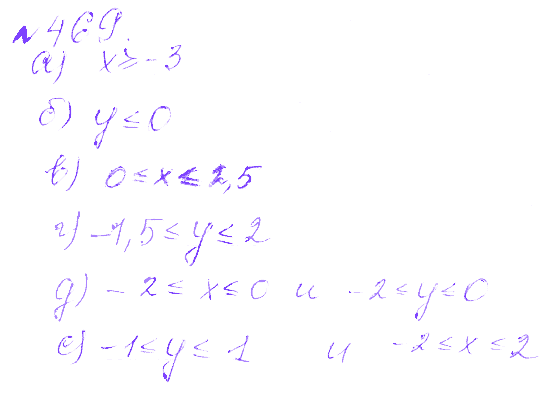 №469.
а) x ≥ -3
б) y ≤ 0
в) 0 ≤ x ≤ 2,5
г) -1,5 ≤ y ≤ 2
д) -2 ≤ x ≤ 0 и -2 ≤ y ≤ 0
е) -1 ≤ y ≤ 1 и -2 ≤ x ≤ 2